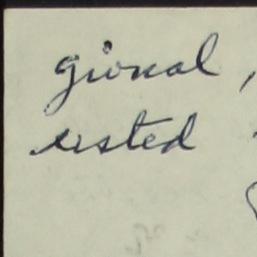 gional,
rested